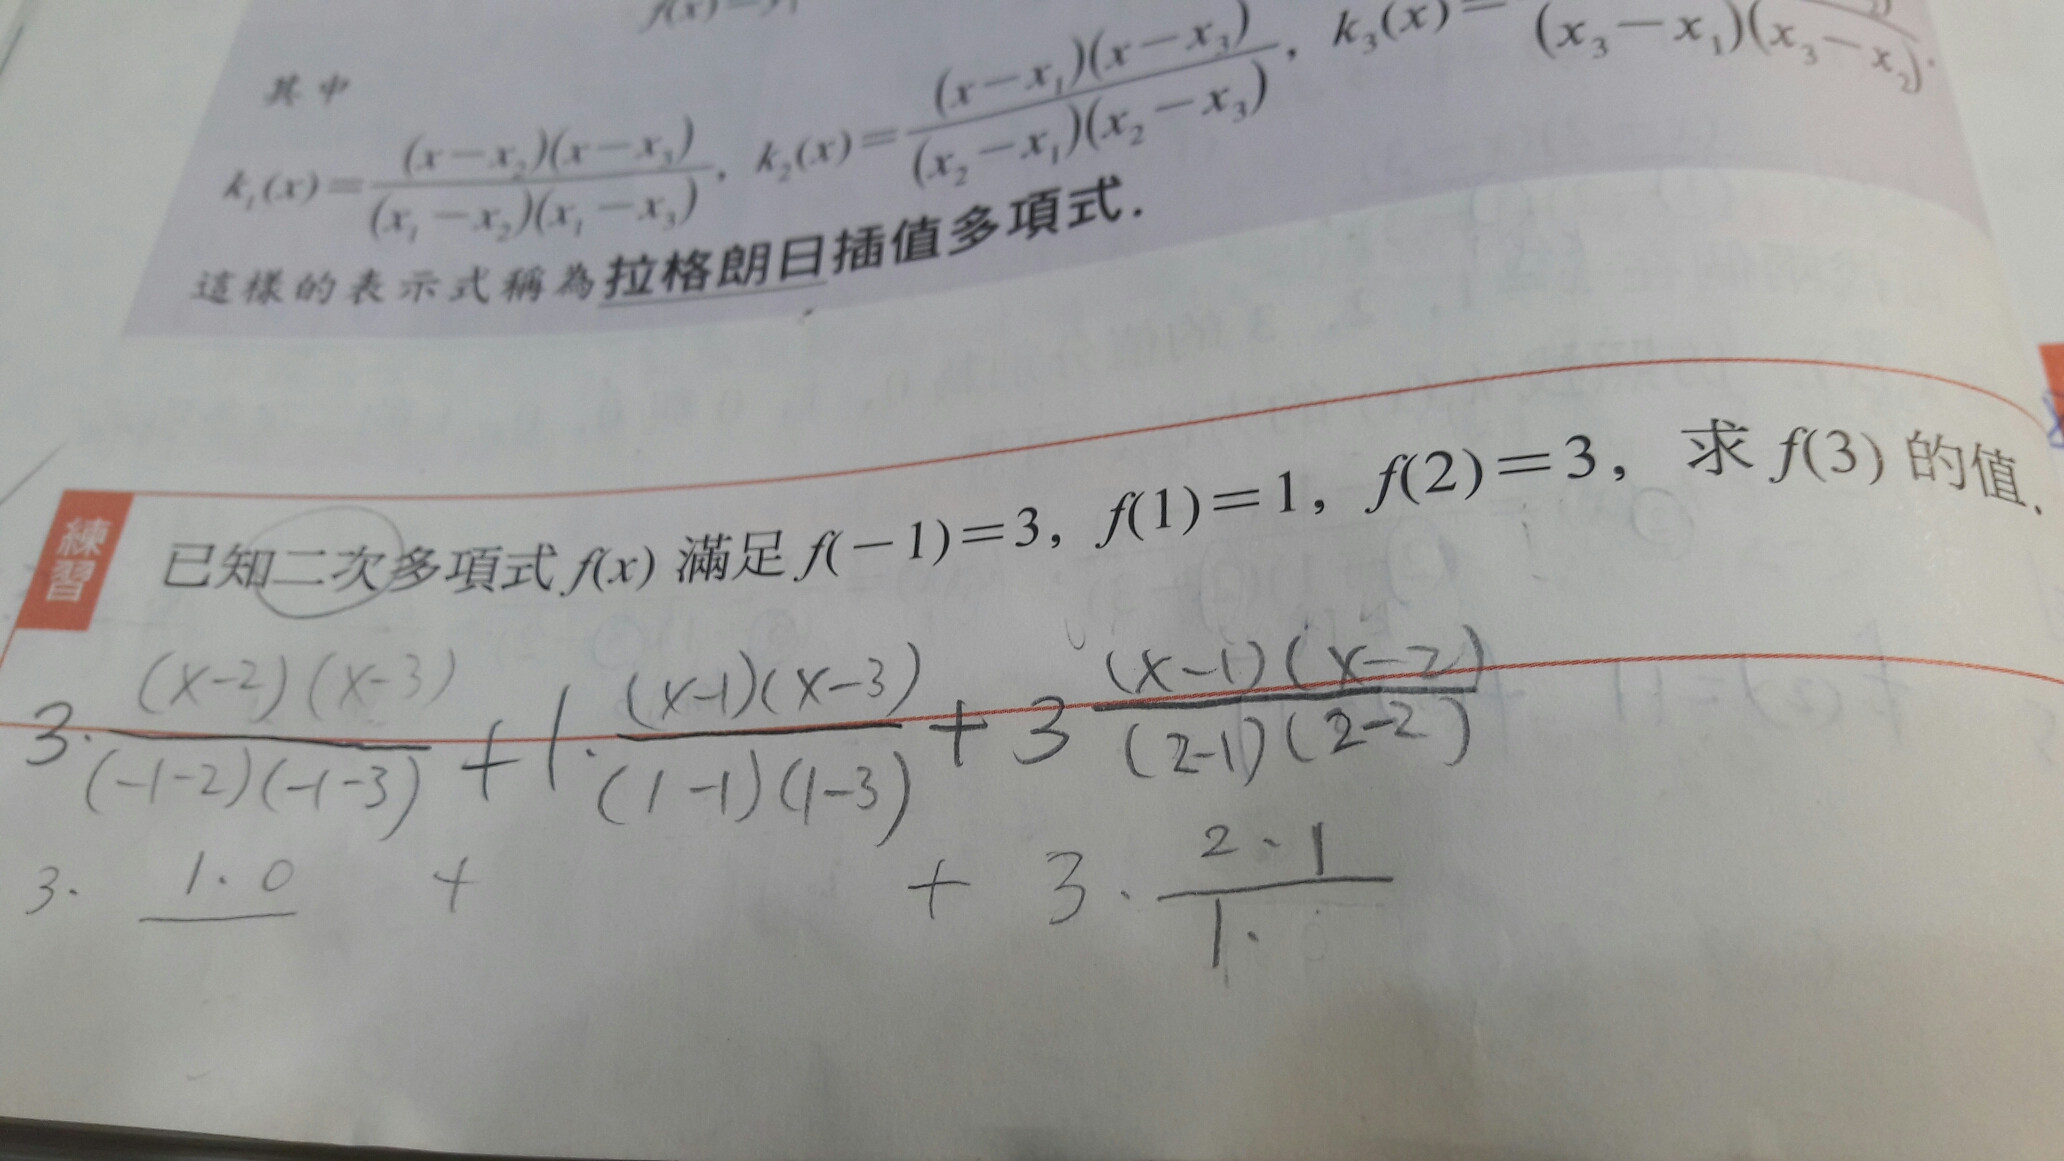 其中
k₁(x)=(x−x₂)(x−x₃)/(x₁−x₂)(x₁−x₃), k₂(x)=(x−x₁)(x−x₃)/(x₂−x₁)(x₂−x₃), k₃(x)= /(x₃−x₁)(x₃−x₂).
這樣的表示式稱為拉格朗日插值多項式.
練習
已知二次多項式 f(x) 滿足 f(−1)=3, f(1)=1, f(2)=3, 求 f(3) 的值.
3·(x-2)(x-3)/(-1-2)(-1-3) + 1·(x-1)(x-3)/(1-1)(1-3) + 3 (x-1)(x-2)/(2-1)(2-2)
3· 1·0/ + + 3· 2·1/1·